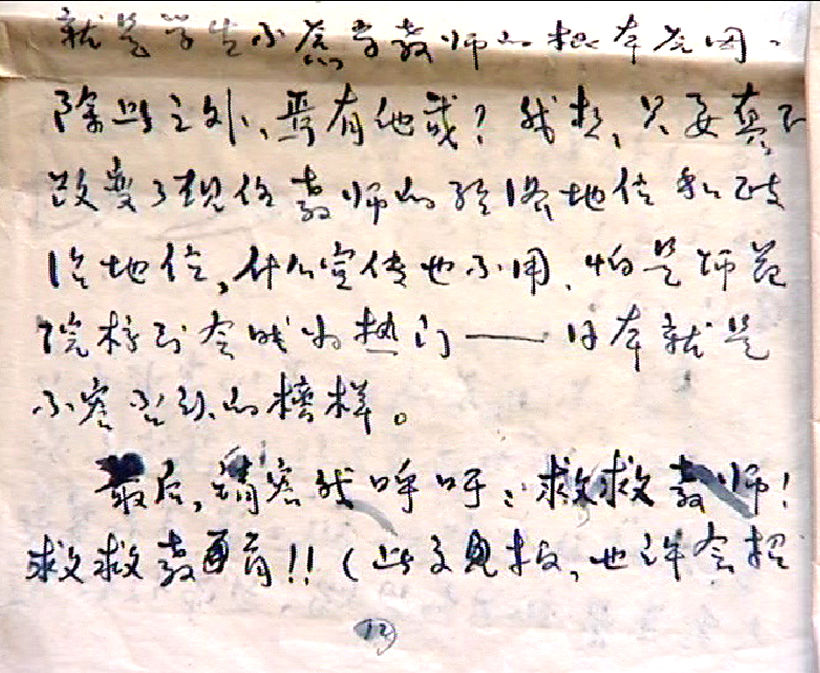 就是学生不愿当教师的根本原因。
除此之外，焉有他哉？我想，只要真正
改变了现任教师的经济地位和政
治地位，什么宣传也不用，怕是师范
院校则会成为热门——日本就是
不容否认的榜样。
最后，请容我呼吁：救救教师！
救救教育!!（此文见报，也许会招
12